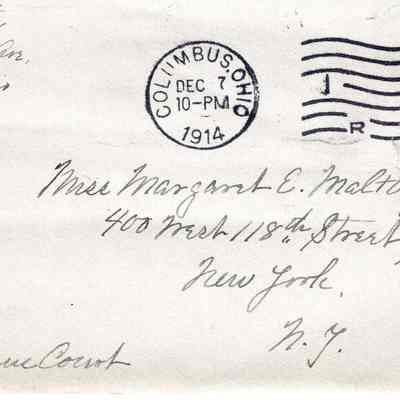 COLUMBUS, OHIO
DEC 7
10-PM
1914
1
R
Miss Margaret E. Malto
400 West 118th Street,
New York.
N. Y.
Court